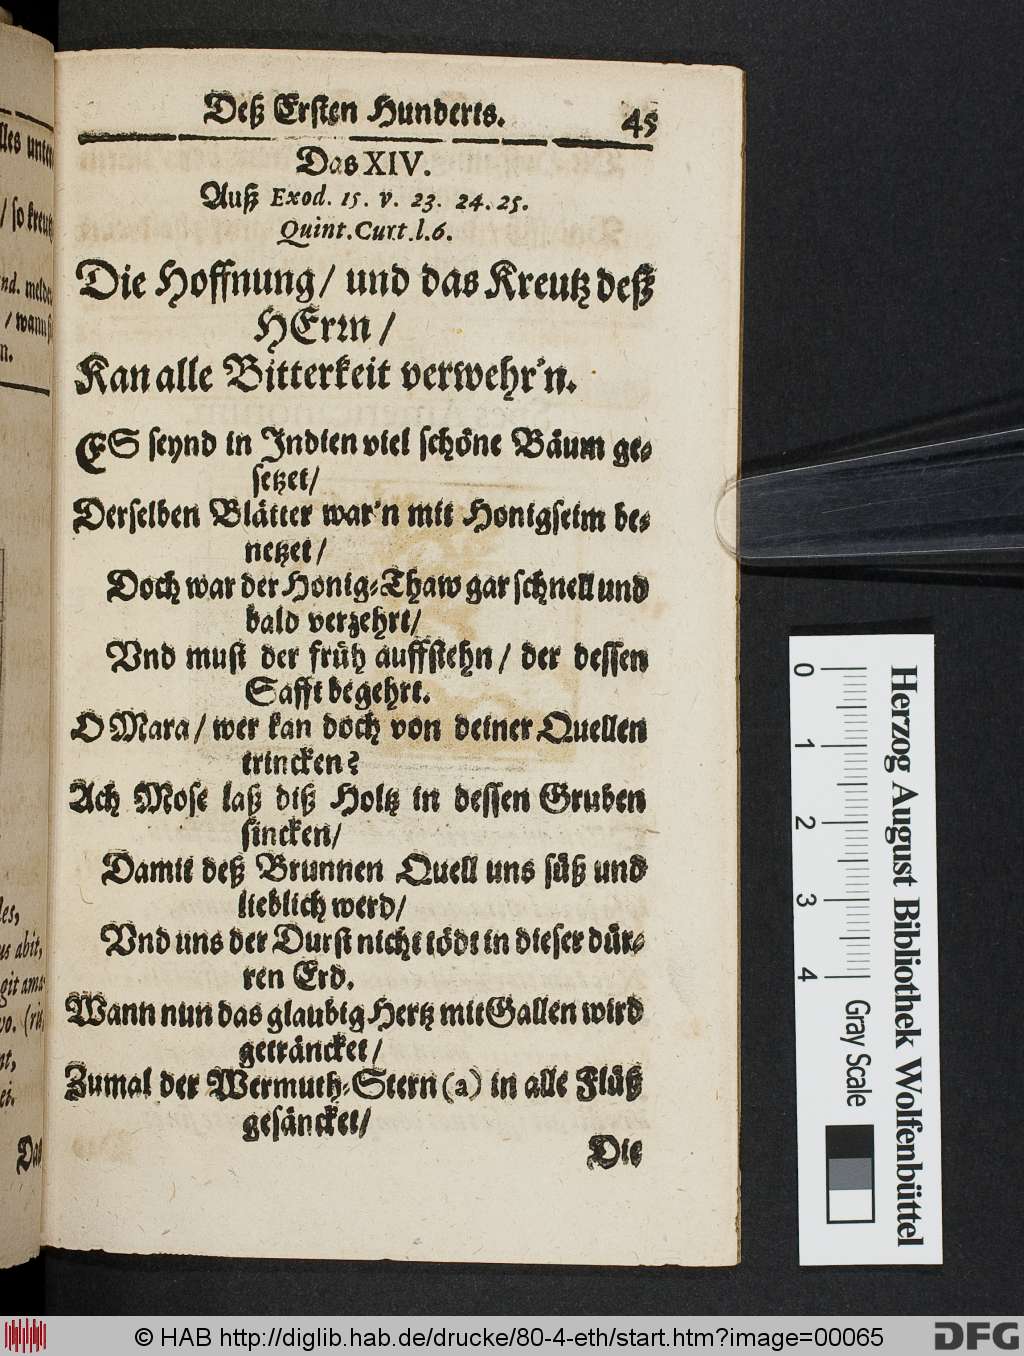 Deß Ersten Hunderts. 45
Das XIV.
Auß Exod. 15. v. 23. 24. 25.
Quint. Curt. l. 6.
Die Hoffnung / und das Kreutz deß
HErrn /
Kan alle Bitterkeit verwehr'n.
ES seynd in Indien viel schöne Bäum ge-
setzet /
Derselben Blätter war'n mit Honigseim be-
netzet /
Doch war der Honig-Thaw gar schnell und
bald verzehrt /
Vnd must der früh auffstehn / der dessen
Safft begehrt.
O Mara / wer kan doch von deiner Quellen
trincken?
Ach Mose laß diß Holtz in dessen Gruben
sincken /
Damit deß Brunnen Quell uns süß und
lieblich werd /
Vnd uns der Durst nicht tödt in dieser dür-
ren Erd.
Wann nun das glaubig Hertz mit Gallen wird
geträncket /
Zumal der Wermuth-Stern (a) in alle Flüß
gesäncket /
Die
lles unter
/ so kreutz
nd. melde
/ wann si
n.
les,
us abit,
git ama-
vo. (ris,
nt,
et.
Das
0 1 2 3 4
Herzog August Bibliothek Wolfenbüttel
Gray Scale
© HAB http://diglib.hab.de/drucke/80-4-eth/start.htm?image=00065
DFG